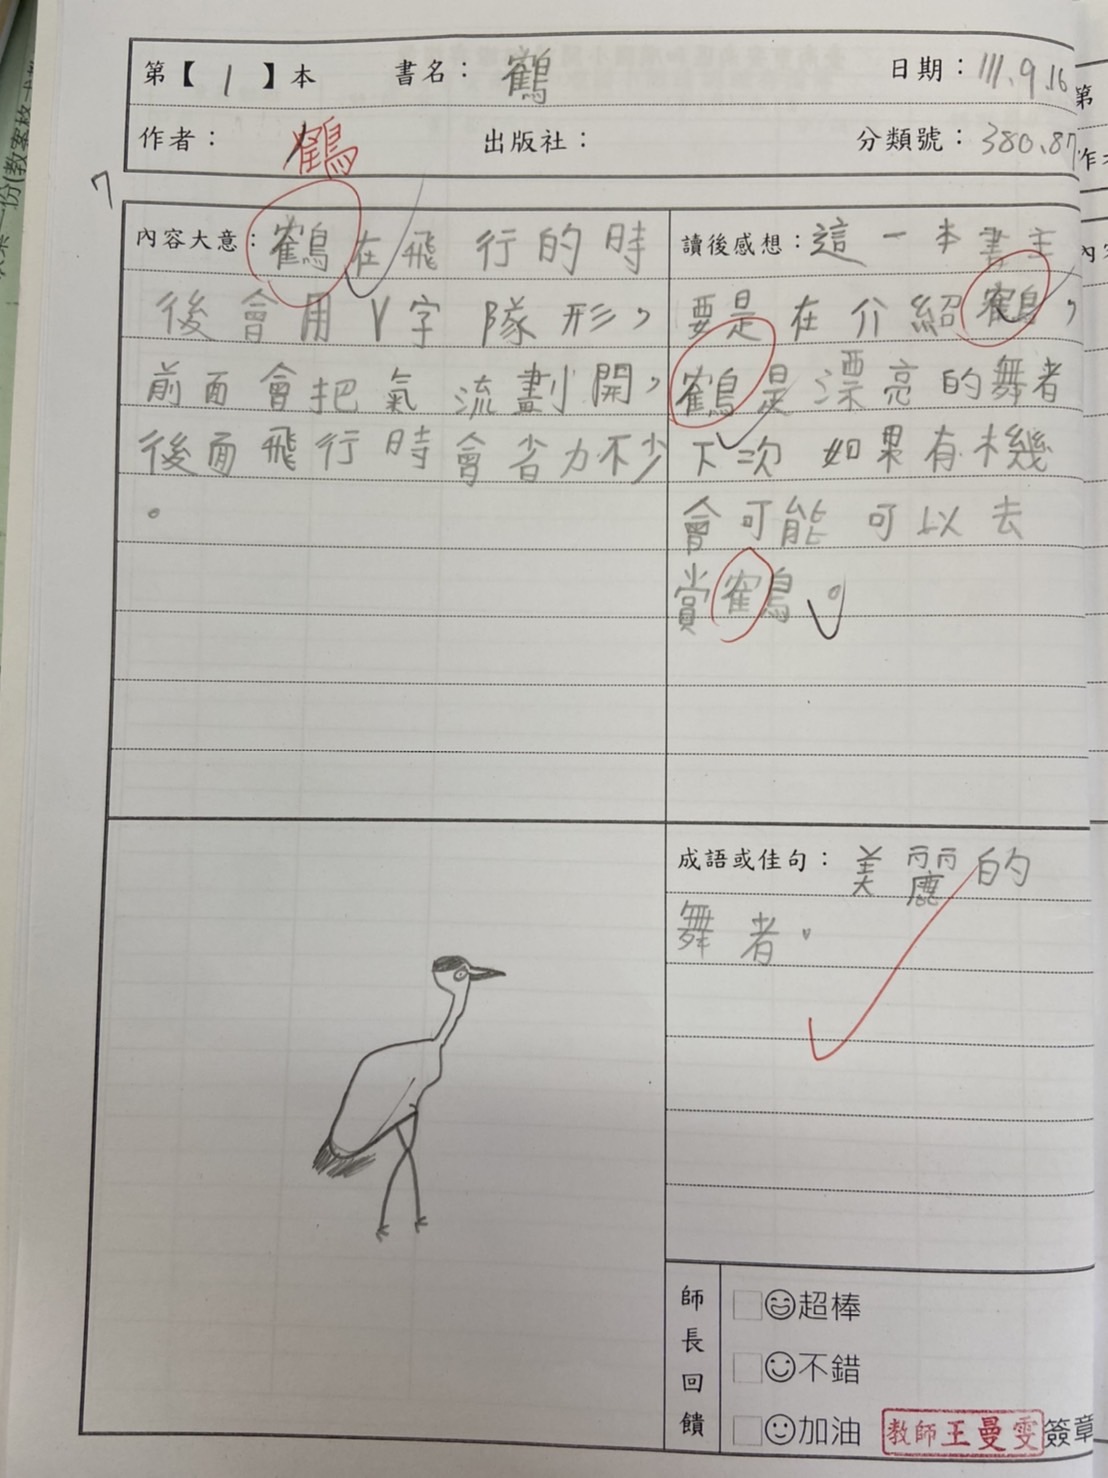 第【 1 】本 書名：鶴 日期：111.9.16
作者： 鶴 出版社： 分類號：380.87
內容大意：鶴在飛行的時
後會用V字隊形，
前面會把氣流劃開，
後面飛行時會省力不少
。
讀後感想：這一本書主
要是在介紹鶴，
鶴是漂亮的舞者
下次如果有機
會可能可以去
賞鶴。
成語或佳句：美麗的
舞者。
師長回饋
超棒
不錯
加油
教師王曼雯簽章